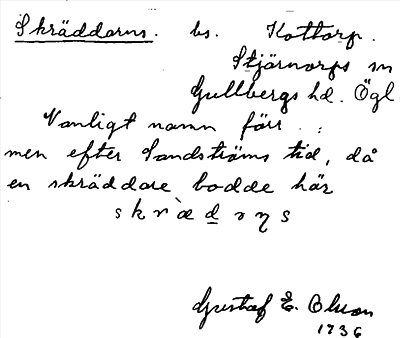 Skräddarns. bs. Kottorp.
Stjärnorps sn
Gullbergs hd. Ögl
Vanligt namn förr.:
men efter Sandströms tid, då
en skräddare bodde här
Gustaf E. Olsson
1736